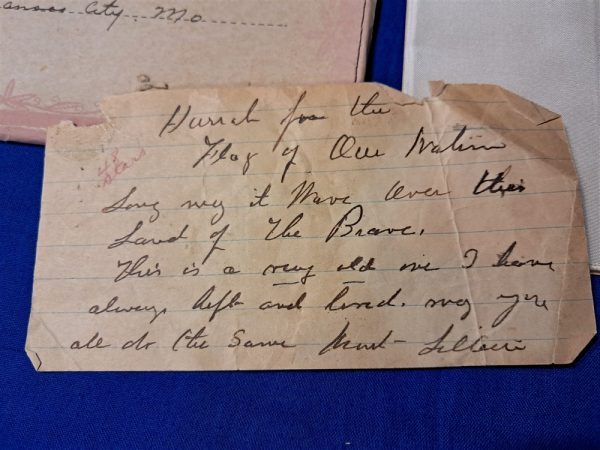 Kansas City, Mo
Hurrah for the
Flag of Our Nation
48
stars
Long may it Wave Over this
Land of The Brave.
This is a very old one I have
always kept and loved. may you
all do the Same Aunt Lillian